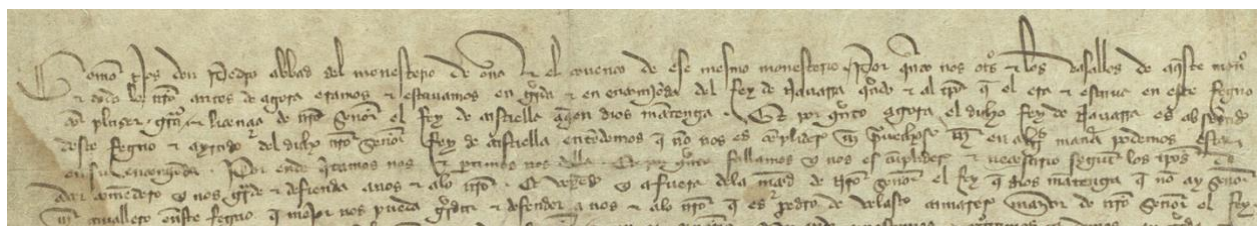 Como Nos don Pedro abbad del monesterio de oña & el conuento de ese mesmo monesterio Por quanto nos otros & los vasallos de aqueste
& todo lo nuestro antes de agora eramos & estauamos en guarda & en encomienda del Rey de Nauarra quando & al tiempo que el era & estaua en este Regno
plazer & licencia de nuestro Señor el Rey de castiella a quien dios mantenga Et por quanto agora el dicho Rey de Nauarra es absentado
deste Regno & del dicho nuestro Señor Rey de castiella entendemos que non nos es conplidero nin prouechoso nin en alguna manera podemos estar
en su encomienda Por ende quitamos nos & partimos nos della Et por quanto fallamos que nos es conplidero & necesario segunt los tienpos
dar comendero que nos guarde & defienda a nos & a lo nuestro Et que afuera dela merced de nuestro Señor el Rey que dios mantenga que non ay Señor
nin cauallero en este Regno que mejor nos pueda guardar & defender a nos & a lo nuestro que es pedro de velasco camarero mayor de nuestro Señor el Rey